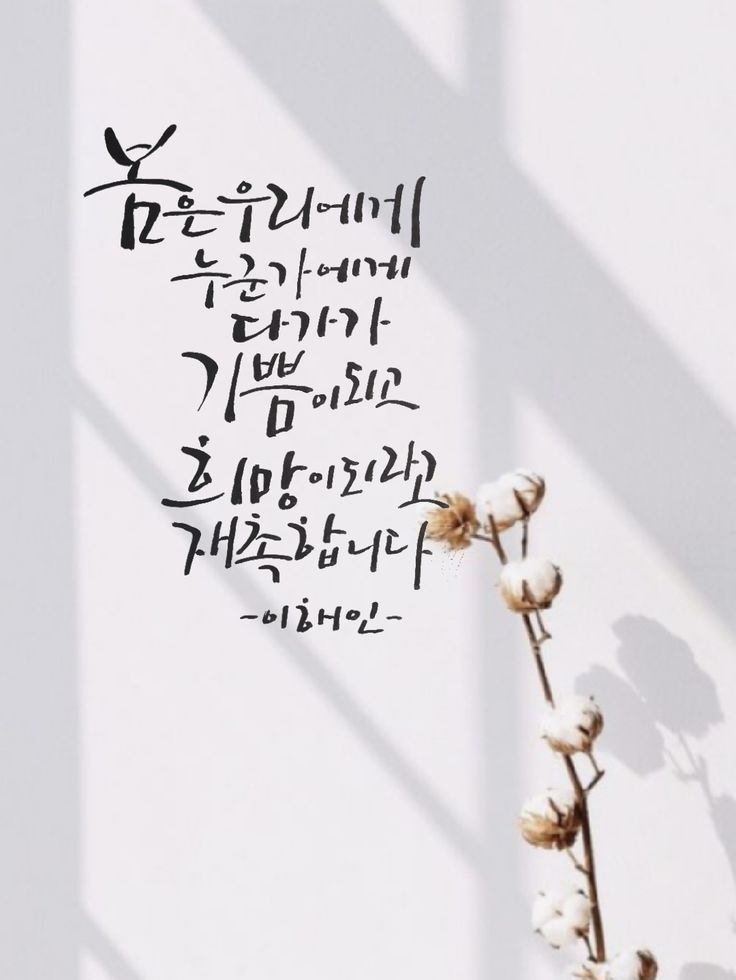 봄은 우리에게
누군가에게
다가가
기쁨이 되고
희망이 되라고
재촉합니다
-이해인-